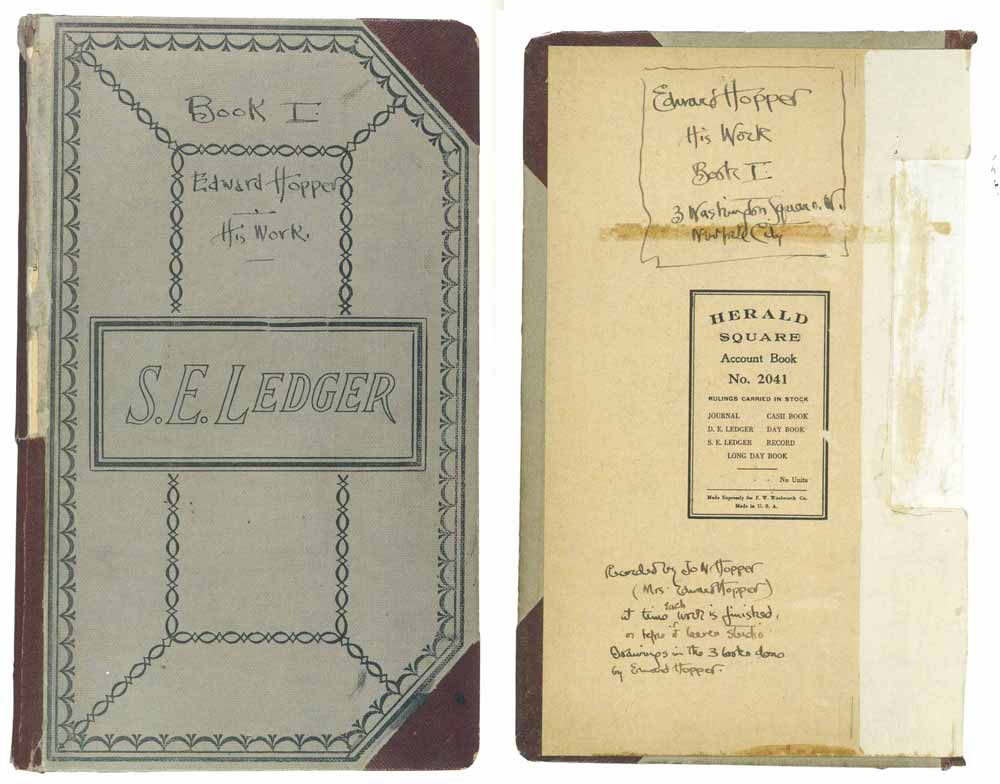 Book I
Edward Hopper
His Work.
S. E. LEDGER
Edward Hopper
His Work
Book I
3 Washington Square N.
New York City
HERALD
SQUARE
Account Book
No. 2041
RULINGS CARRIED IN STOCK
JOURNAL CASH BOOK
D. E. LEDGER DAY BOOK
S. E. LEDGER RECORD
LONG DAY BOOK
No Units
Made Expressly for F. W. Woolworth Co.
Made in U. S. A.
Recorded by Jo N. Hopper
(Mrs. Edward Hopper)
at time each work is finished,
or before it leaves studio
Drawings in the 3 books done
by Edward Hopper.